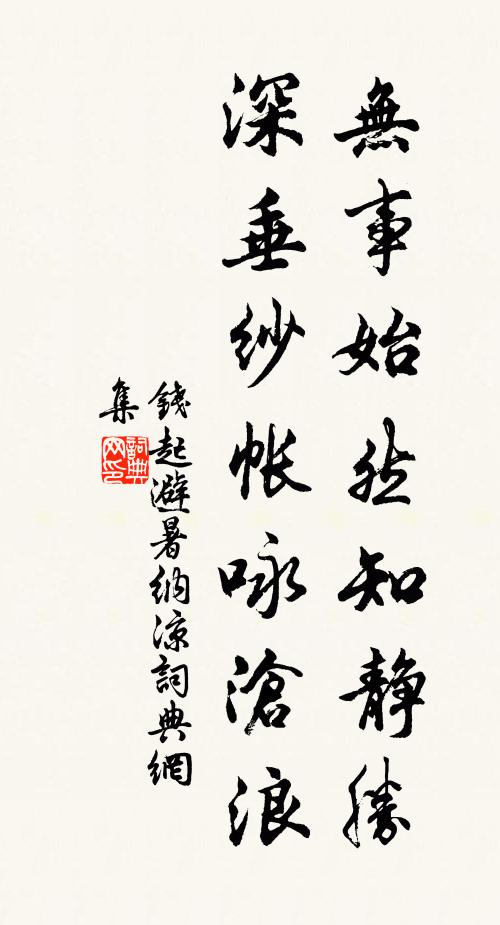 無事始然知靜勝
深垂紗帳咏滄浪
錢起避暑納涼詞典網
集
詞典網印